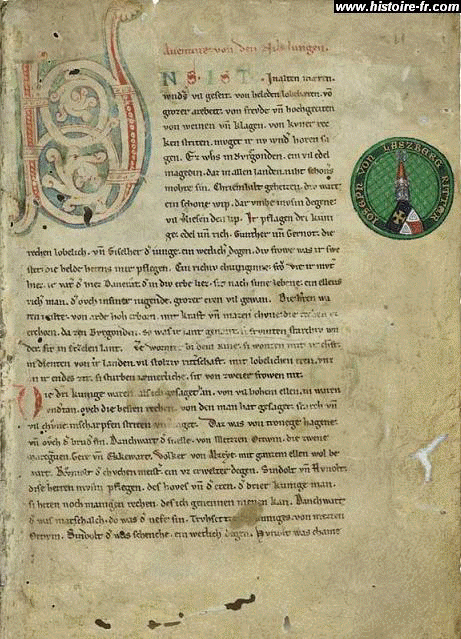 www.histoire-fr.com
Auenture von den Nibelungen.
VNS IST In alten mæren
wnds vil geseit. von heleden lobebæren. võ
grozer arebeit. von frevde vñ hochgeciten
von weinen vñ klagen. von kvner recken
striten. mvget ir nv wnd horen sa
gen. Ez whs in Bvrgonden. ein vil edel
magedin. daz in allen landen. niht schoners
mohte sin. Chriemhilt geheizen. div wart
ein schone wip. dar vmbe mvsin degene
vil v'liesen den lip. Ir pflagen dri kuni
ge. edel vñ rich. Gunther vñ Gernot. die
rechen lobelich. vñ Giselher d' iunge. ein wetlich degen. div frowe was ir swe
ster. die helde hetens inir pflegen. Ein richiv chuniginne. frŏ Vte ir mvt'
hiez. ir vat' d' hiez Dancrat. d' in div erbe liez. sit nach sime lebene. ein ellens
rich man. d' ovch insiner ivgende. grozer eren vil gewan. Die h'ren waren
milte. von arde hoh erborn. mit kraft
da zen Bvrgonden. so was ir lant genant. si frvmten starchiv wn
der. sit in Ecelen lant. Ze Wormze bi dem Rine. si wonten mit ir chraft.
in dienten von ir landen. vil stolziv ritterschaft. mit lobelichen eren. vnz
an ir endes zit. si stvrben iæmerliche. sit von zweier frowen nit.
Die dri kunige waren. als ich gesaget han. von vil hohem ellen. in waren
vndertan. ovch die besten rechen. von den man hat gesaget. starch vñ
vil chvne. inscharpfen striten vnverzaget. Daz was von Tronege Hagene.
vñ ovch d' brvd' sin. Danchwart d' snelle. von Metzen Ortwin. die zwene
marcgraven. Gere vñ Ekkewart. Volker von Alzeye. mit ganzem ellen wol be
wart. Rvmolt d' chvchenmeist'. ein vz erwelter degen. Sindolt vñ Hvnolt.
dise herren mvsin pflegen. des hoves vñ d' eren. d' drier kunige man.
si heten noch manigen rechen. des ich genennen niht enkan. Danchwart
d' was marschalch. do was d' nefe sin. Trvhsetze des kuniges. von Metzen
Ortwin. Sindolt d' was schenche. ein wetlich degen. Hvnolt was chame
IOSEPH VON LASZBERG RITTER